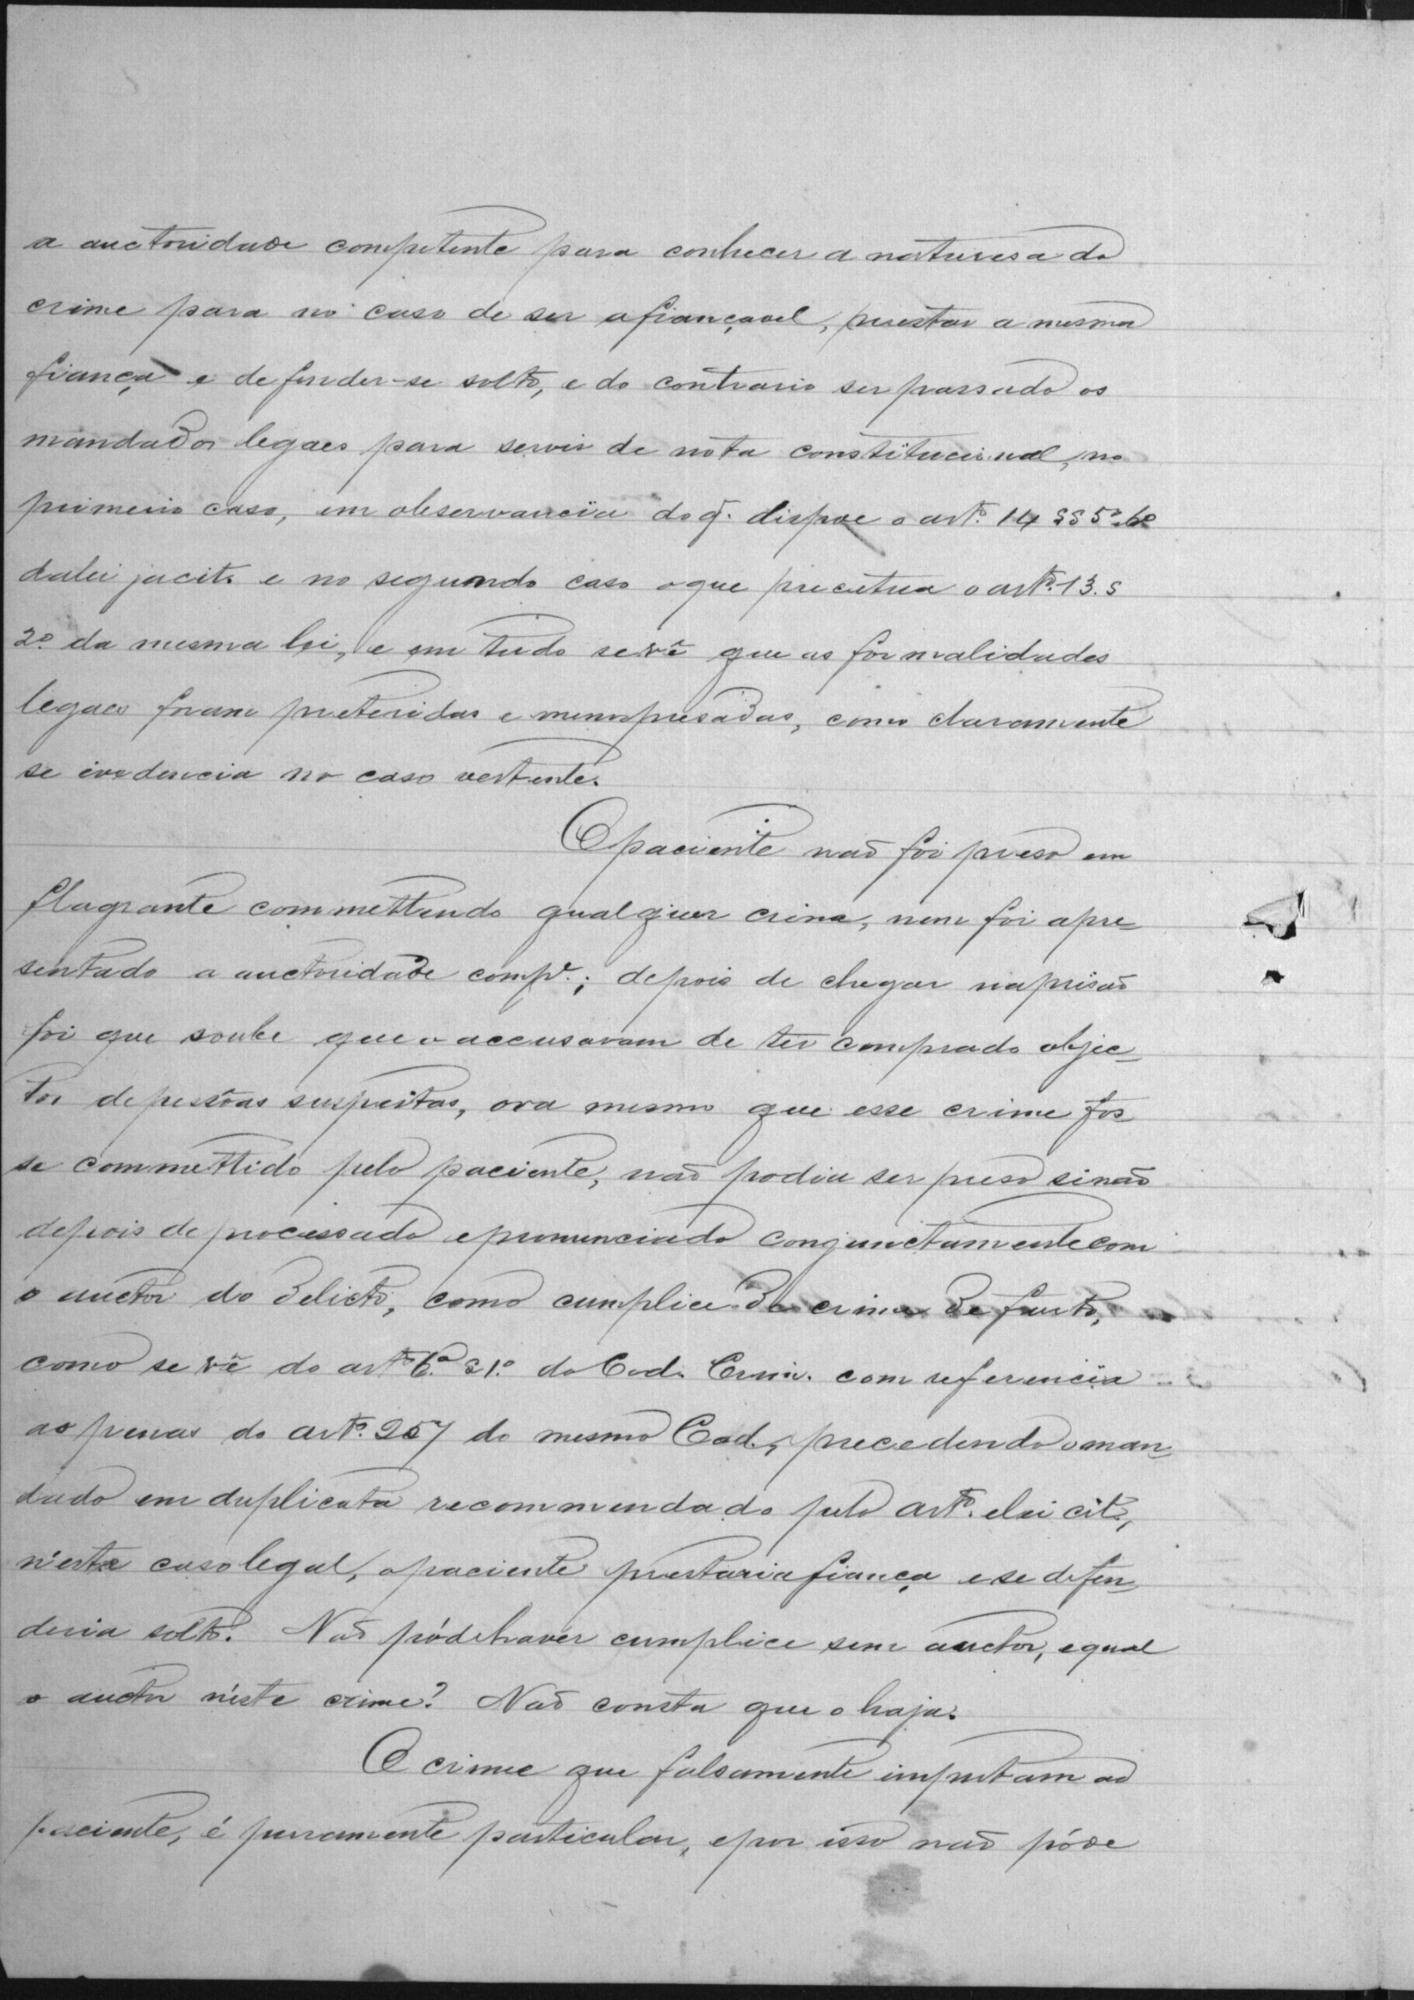 a auctoridade competente para conhecer a naturesa do
crime para no caso de ser afiançavel, prestar a mesma
fiança e defender-se solto, e do contrario ser passado os
mandados legaes para servir de nota constitucional, no
primeiro caso, em observancia do q. dispoe o artº. 14 §§ 5º 6º
da lei já cit. e no segundo caso o que preceitua o artº. 13. §
2º da mesma lei, e em tudo se vê que as formalidades
legaes foram preteridas e menospresadas, como claramente
se evedencia no caso vertente.
O paciente não foi preso em
flagrante commettendo qualquer crime, nem foi apre-
sentado a auctoridade compe.; depois de chegar na prisão
foi que soube que o accusavam de ter comprado objec-
tos de pessôas suspeitas, ora mesmo que esse crime fos
se commettido pelo paciente, não podia ser preso sinão
depois de processado e pronunciado conjunctamente com
o auctor do delicto, como cumplice de crime de furto,
como se vê do artº 6º. § 1º. do Cod. Crim. com referencia
as penas do artº. 257 do mesmo Cod., precedendo o man-
dado em duplicata recommendado pelo artº. e lei cit.,
n'este caso legal, o paciente prestaria fiança e se defen-
deria solto. Não póde haver cumplice sem auctor, e qual
o auctor n'este crime? Não consta que o haja.
O crime que falsamente imputam ao
paciente, é puramente particular, e por isso não póde